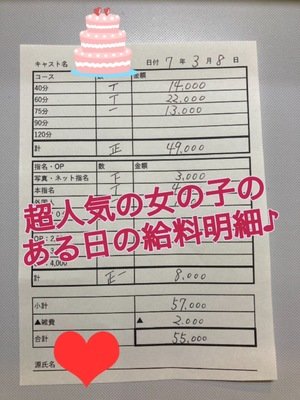 キャスト名 日付 7年3月8日
コース 数 金額
40分 T 14,000
60分 T 22,000
75分 一 13,000
90分
120分
計 正 49,000
指名・OP 数 金額
写真・ネット指名 下 3,000
本指名 T
超人気の女の子の
ある日の給料明細♪
計 正一 8,000
小計 57,000
▲雑費 ▲ 2,000
合計 55,000
源氏名